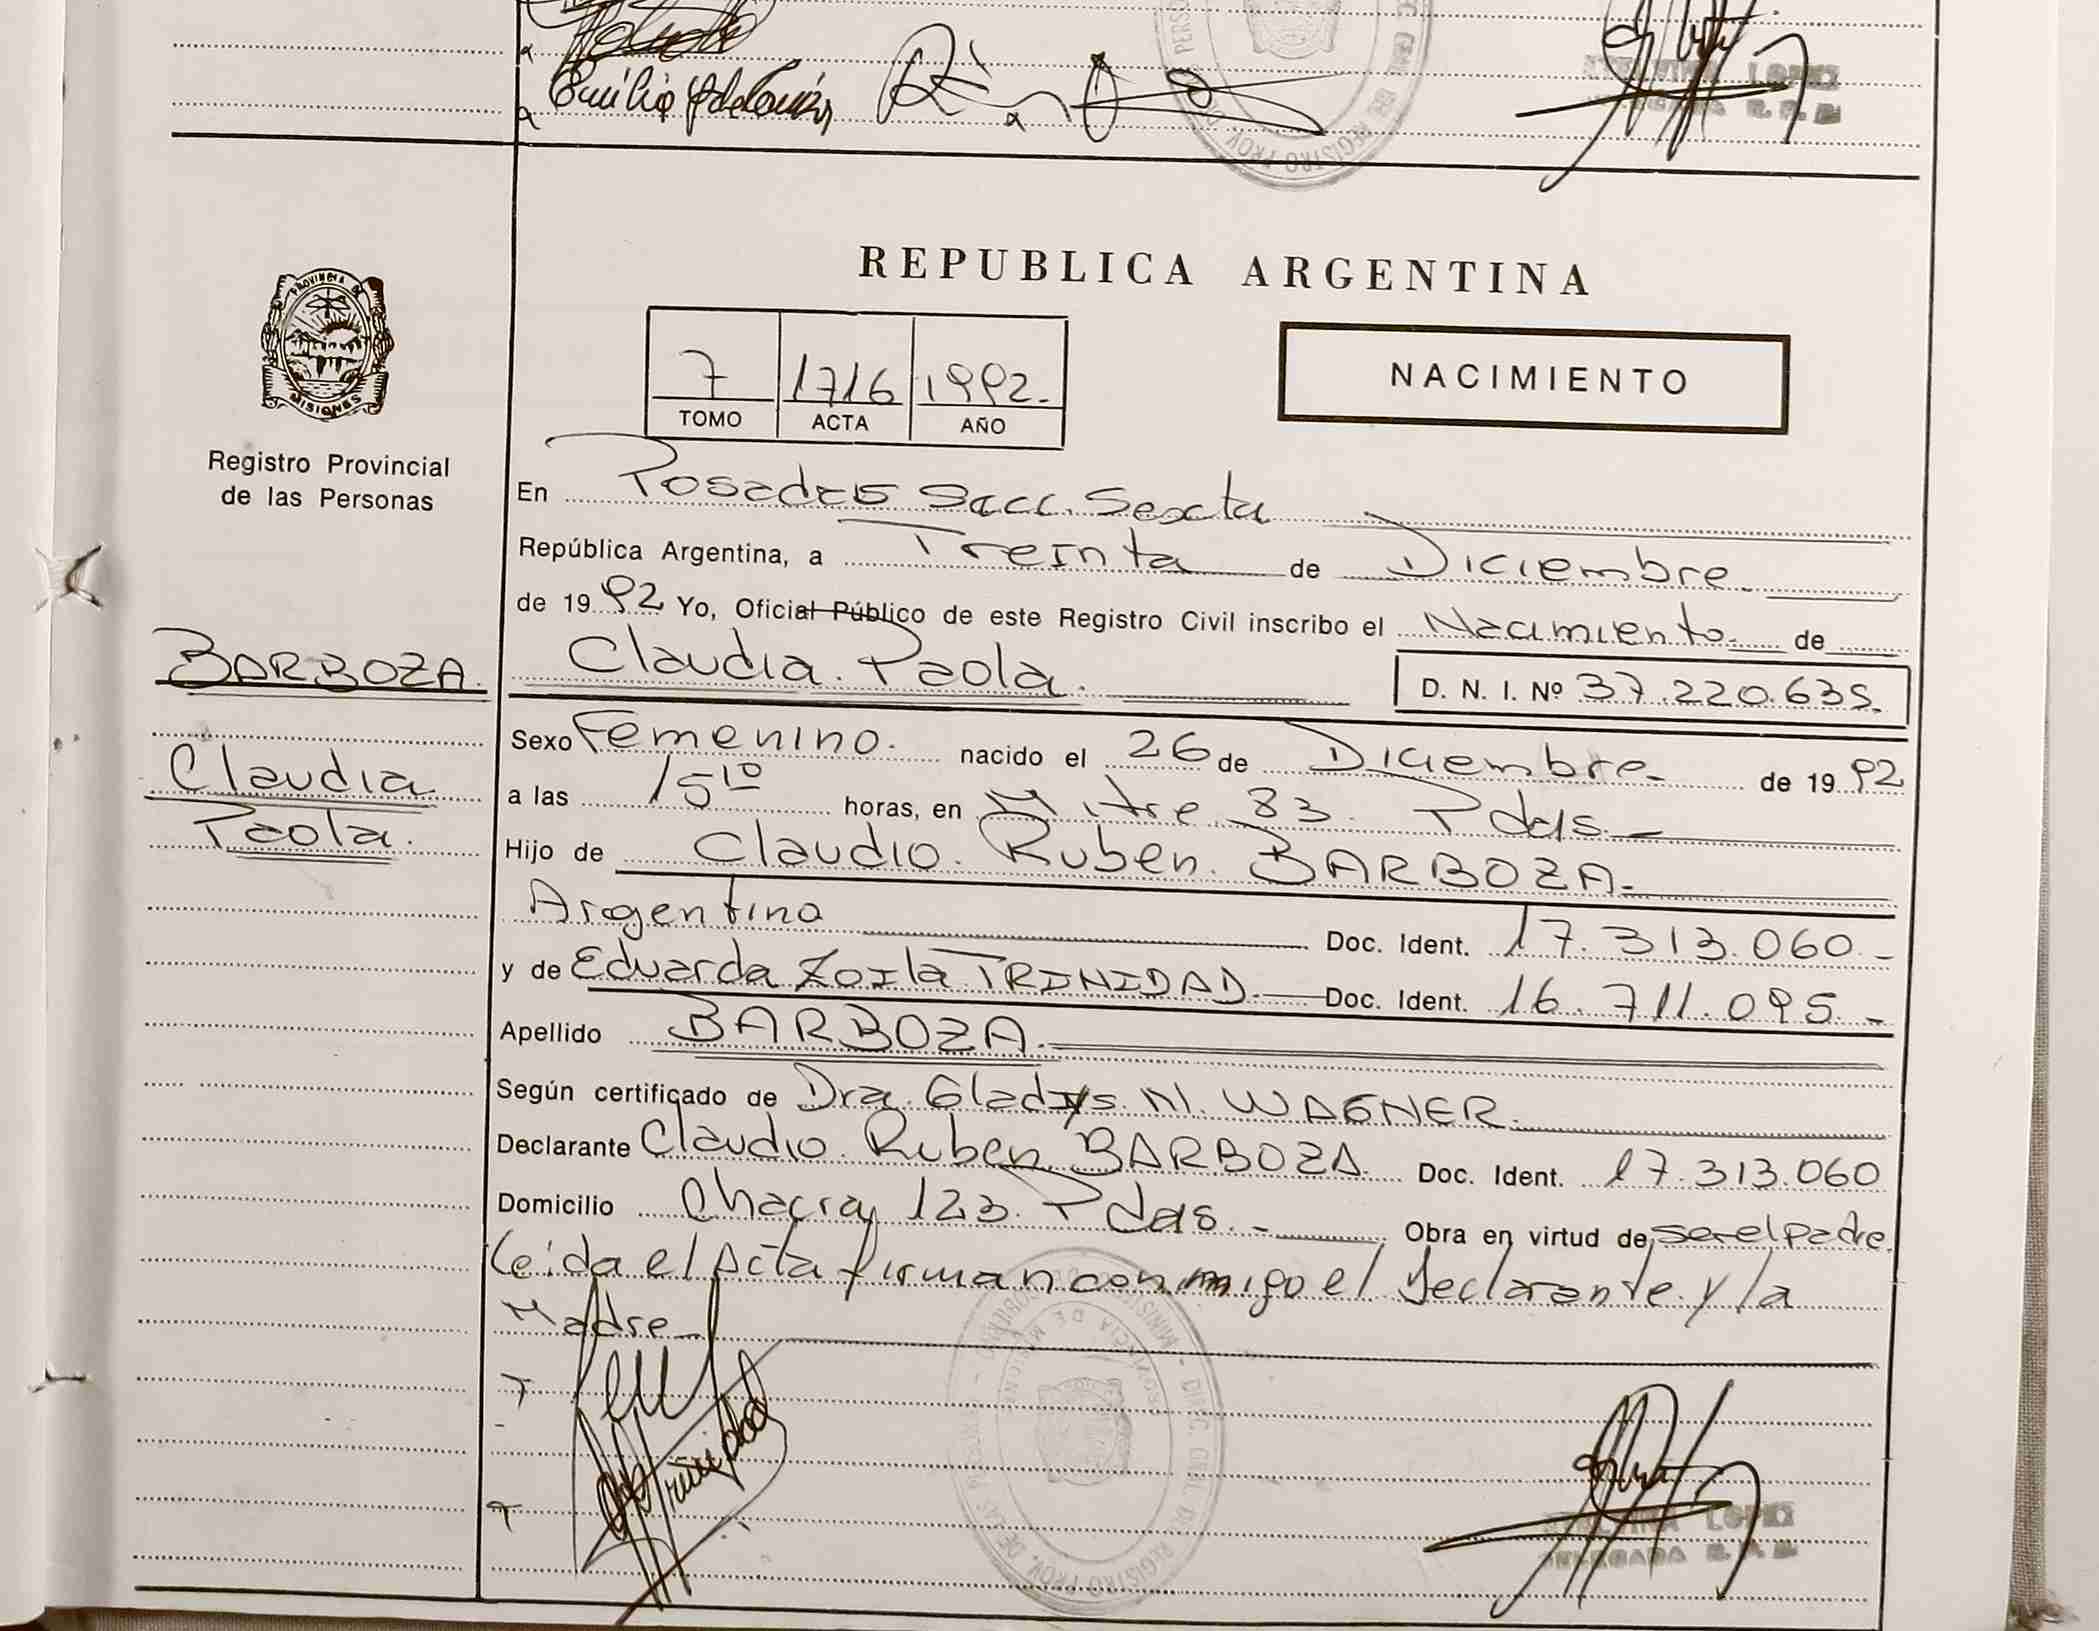 REPUBLICA ARGENTINA
PROVINCIA DE
MISIONES
7 1716 1992.
TOMO ACTA AÑO
NACIMIENTO
Registro Provincial
de las Personas
En Posadas Secc. Sexta
República Argentina, a Treinta de Diciembre
de 1992 Yo, Oficial Público de este Registro Civil inscribo el Nacimiento de
BARBOZA.
Claudia
Paola.
Claudia. Paola.
D. N. I. Nº 37.220.635.
Sexo Femenino. nacido el 26 de Diciembre de 1992
a las 15 10 horas, en Mitre 83. Pdas.
Hijo de Claudio. Ruben. BARBOZA.
Argentino Doc. Ident. 17.313.060.-
y de Eduarda Zoila TRINIDAD. Doc. Ident. 16.711.095.-
Apellido BARBOZA.
Según certificado de Dra. Gladys. M. WAGNER.
Declarante Claudio. Ruben BARBOZA. Doc. Ident. 17.313.060
Domicilio Chacra 123. Pdas.- Obra en virtud de ser el padre.
Leida el Acta firman conmigo el declarante y la
Madre
Trinidad
LOPEZ
DELEGADA R.P.P.